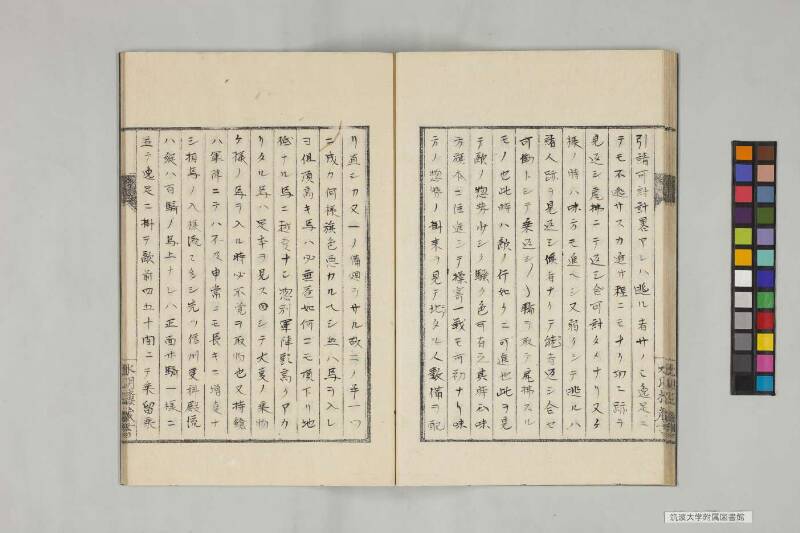 引請可討計畧アレハ逃ル者サノミ逸足ニ
テモ不逃サスカ進サ程ニモナリ切ニ跡ヲ
見返シ尾拂ニテ返シ合可討タメナリ又ケ
様ノ時ハ味方モ進ヘシ又弱クシテ逃ルハ
諸人跡ヲ見返シ候者ナリテ能者返シ合セ
可働トシテ乗返シノリ輪ヲ取テ尾拂スル
モノ也此時ハ敵ノ行如クニ可進也此ヲ見
テ敵ノ惣勢少シノ騒ク色可有之其時ハ味
方旗本ニ住進シテ操寄一戦モ可初ナリ味
方ノ惣勢ノ掛来ヲ見テ地タル人数備ヲ配
リ直シカ又一ノ備崩ラサル故ニノ手一ツ
ニ成カ何様旗色悪カルヘシ並ハ馬ヲ入レ
ヨ但頂高キ馬ハ必垂返如何ニモ頂下リ地
低ナル馬ニ越度ナシ惣別軍陣影高クアカ
リタル馬ハ足本ヲ見ス四シテ大夏ノ乗物
ケ様ノ馬ヲ入ル時必不覚ヲ取物也又持鎗
ハ軍陣ニテハ不及申常ニモ長キニ増夏ナ
シ相馬ノ入様流々多シ先ツ信州更科殿流
ハ縦ハ百騎ノ馬上ナレハ正面廿騎一様ニ
並テ逸足ニ掛テ敵前四五十間ニテ乗留乗
筑波大学附属図書館